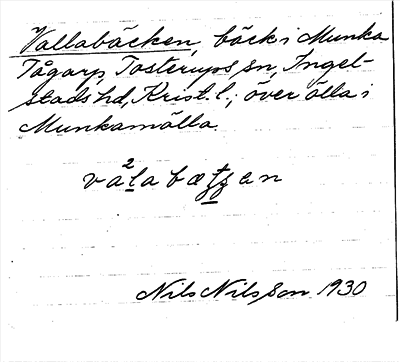 Vallabäcken, bäck i Munka
Tågarp, Tosterups sn, Ingel-
stads hd, Krist. l.; över ölla i
Munkamölla.
Nils Nilsson 1930